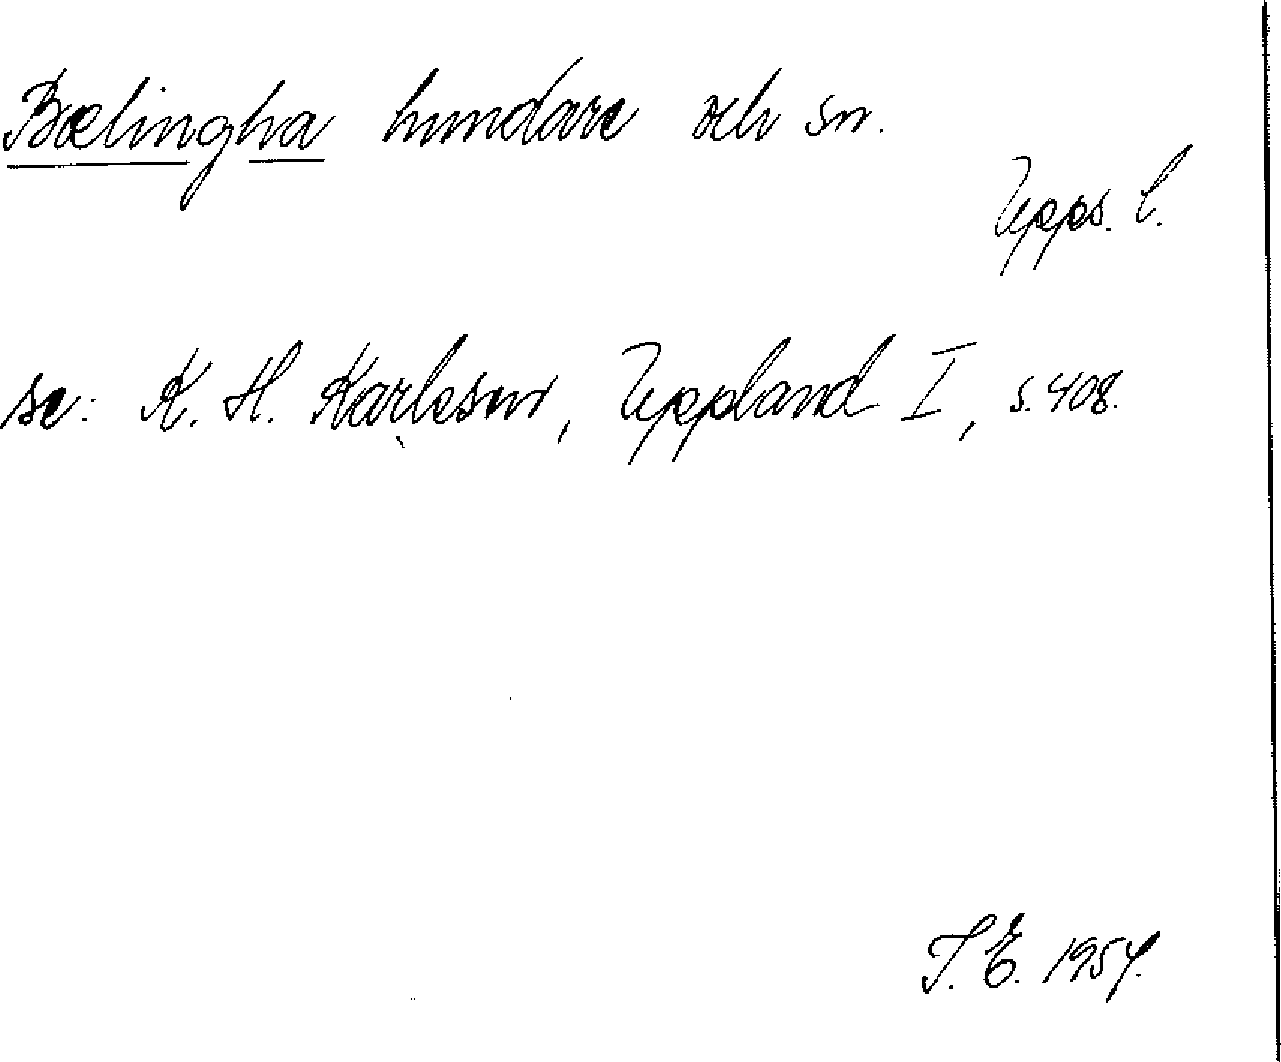 Bælingha hundare och sn.
Upps. l.
se: K. H. Karlsson, Uppland I, s. 408.
T. E. 1954.